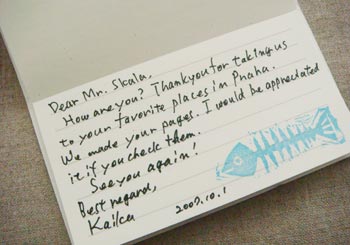 Dear Mr. Skala,
How are you? Thank you for taking us
to your favorite places in Praha.
We made your pages. I would be appreciated
it if you check them.
See you again!
Best regard,
Kailca
2007.10.1